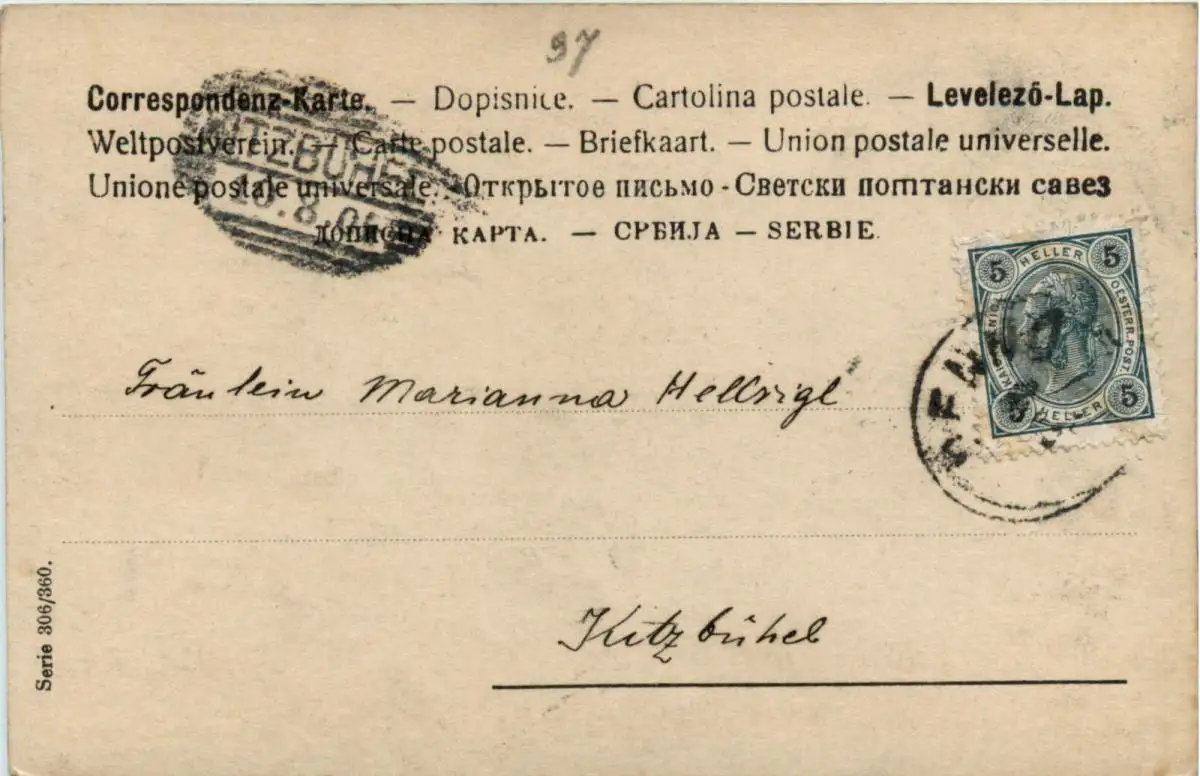 97
Correspondenz-Karte. — Dopisnice. — Cartolina postale. — Levelező-Lap.
Weltpostverein. — Carte postale. — Briefkaart. — Union postale universelle.
Unione postale universale. - Открытое письмо - Светски поштански савез
ДОПИСНА КАРТА. — СРБИЈА — SERBIE.
ITZBÜHE
.8.0
5 HELLER 5
OESTERR. POST.
5 HELLER 5
Fräulein Marianna Hellrigl
Kitzbühel
Serie 306/360.